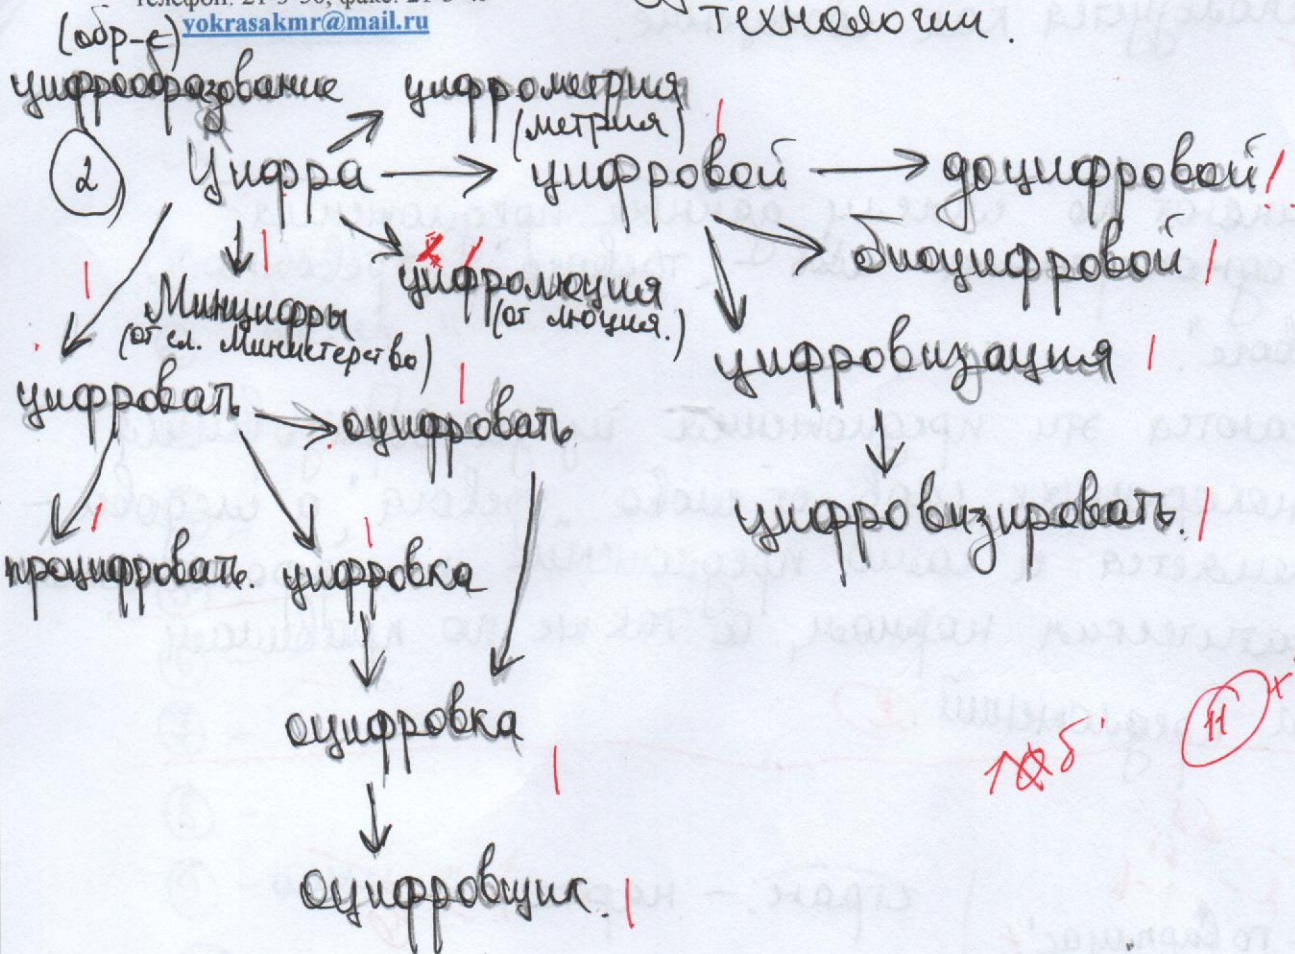 yokrasakmr@mail.ru
технологии.
(обр-е)
цифрообразование
цифрометрия
(метрия)
2 Цифра → цифровой → доцифровой
биоцифровой
цифролюция
(от люция.)
Минцифры
(от сл. Министерство)
цифровизация
цифровать → оцифровать
цифровизировать.
процифровать. цифровка
оцифровка
11
оцифровщик.